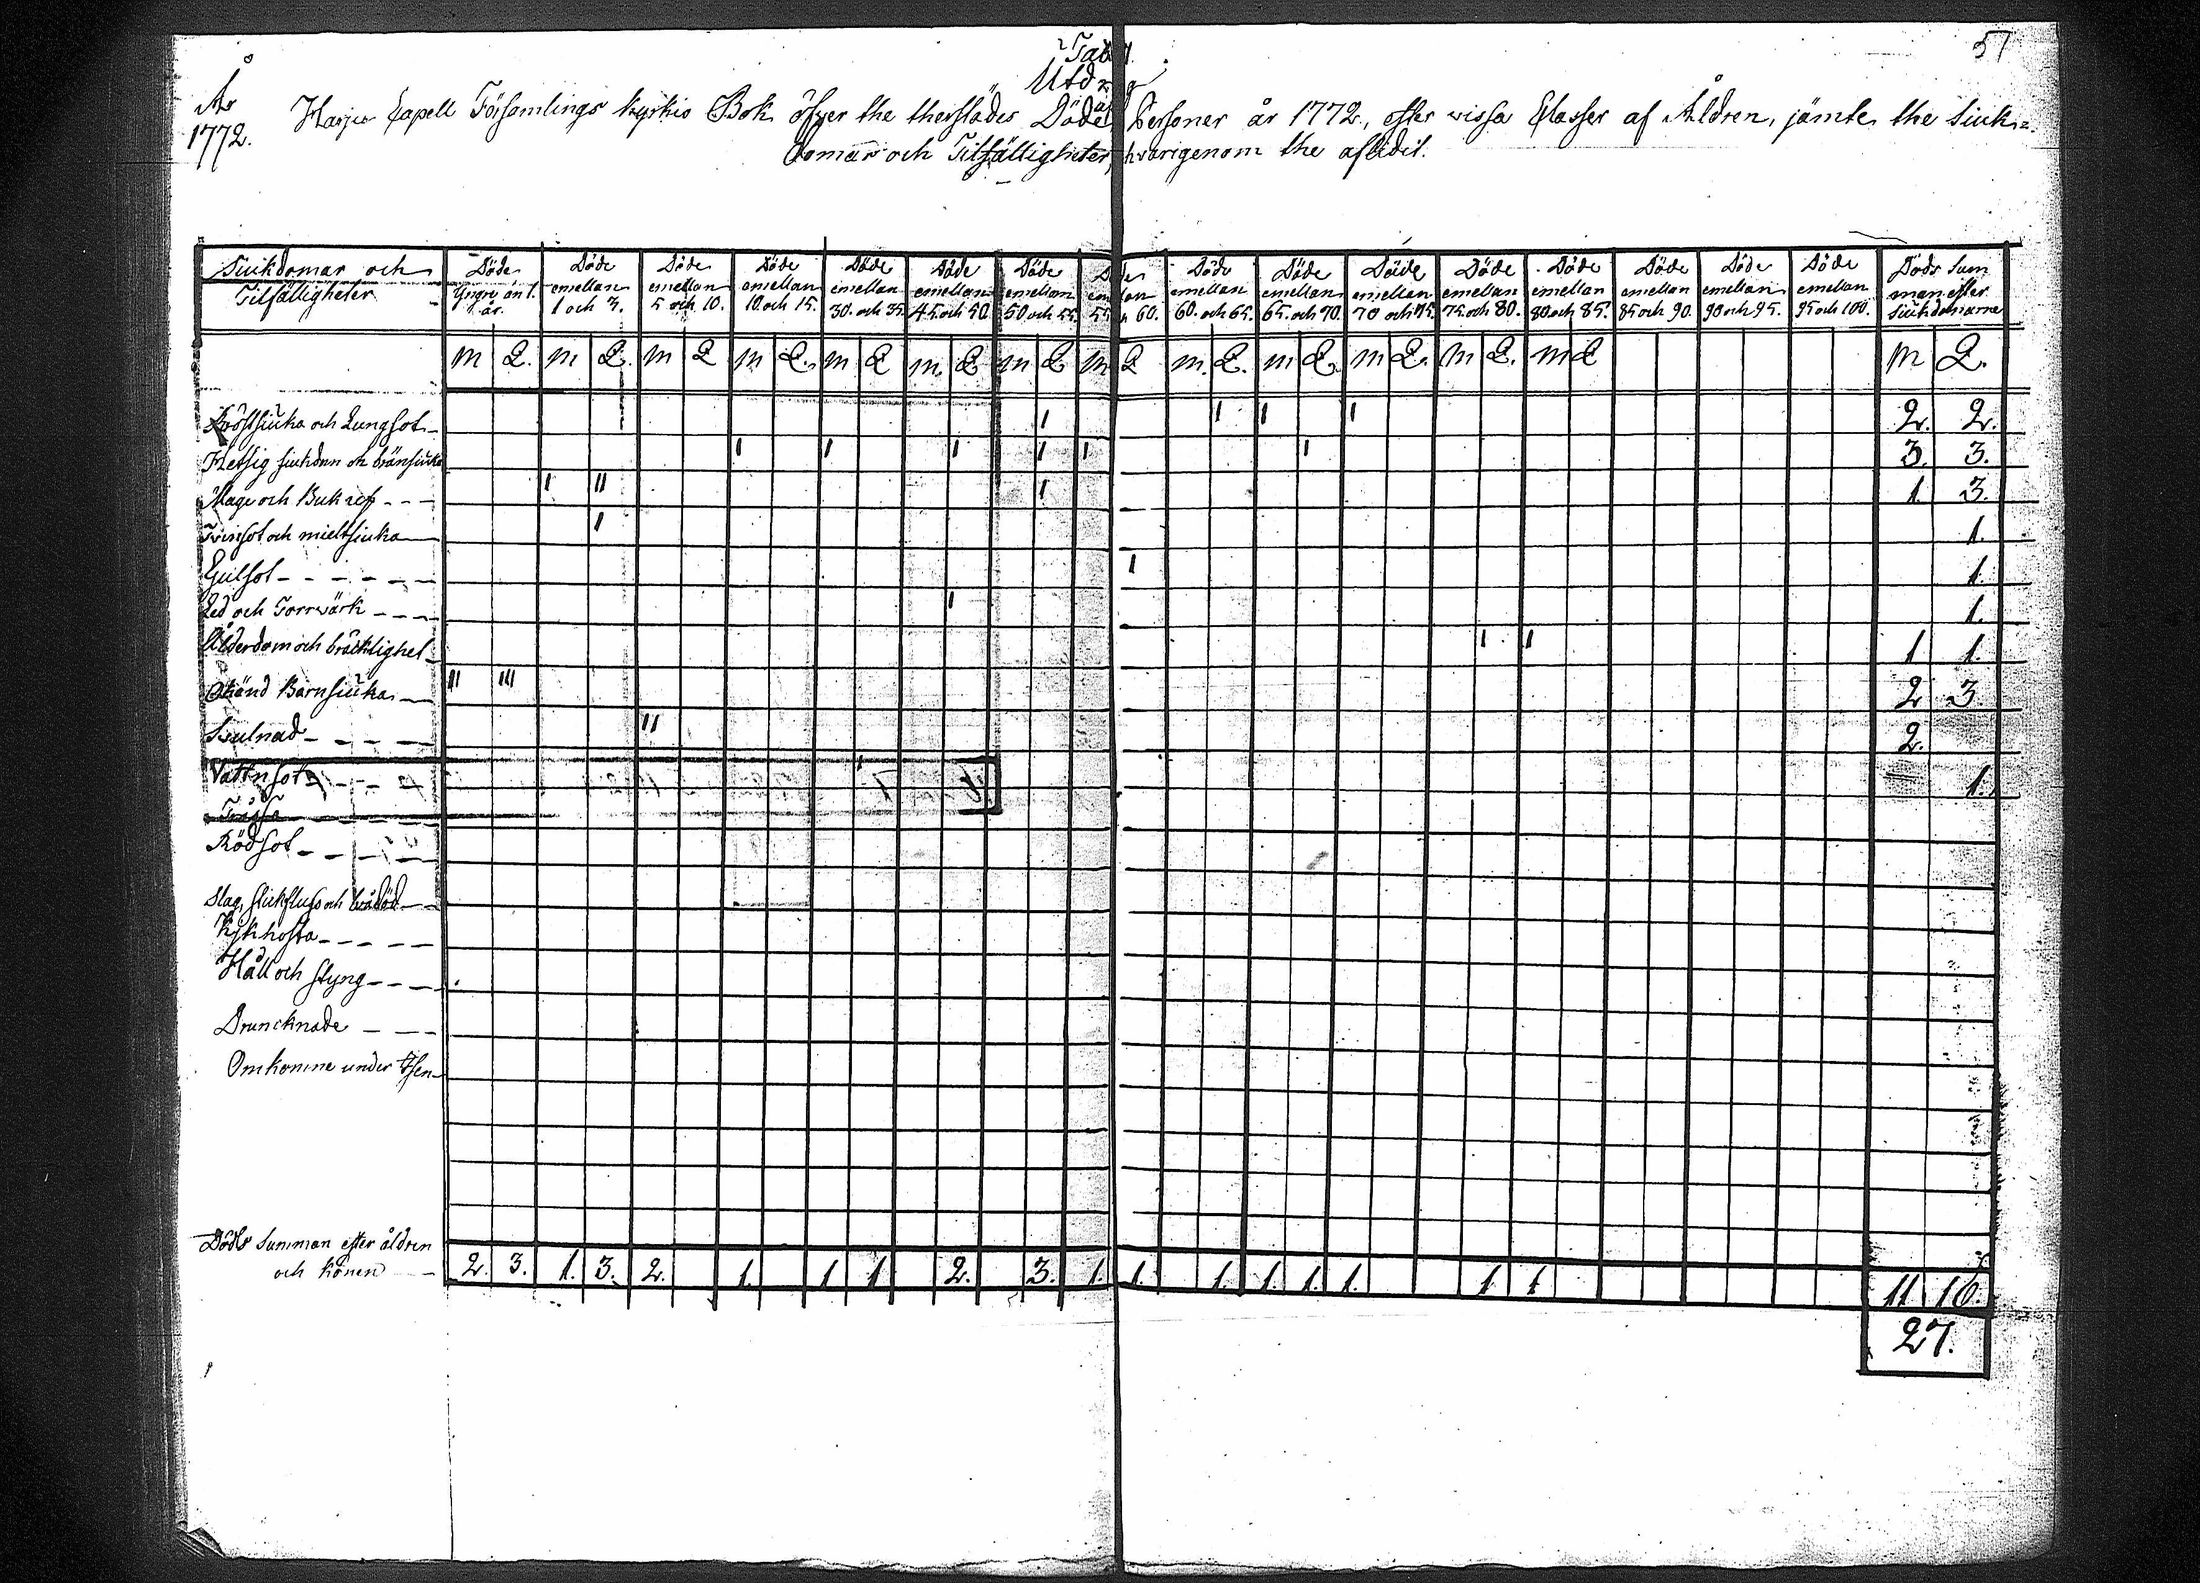 57
Tab
Utd g
År
1772.
Harju Capell Församlings kyrkio Bok öfver the therstädes Döde Personer år 1772, efter vissa Classer af Åldren, jämte the siuk=
domar och Tilfälligheter, hvarigenom the aflidit.
Siukdomar och Tilfälligheter | Döde Yngre än 1. år. | Döde emellan 1 och 3. | Döde emellan 5 och 10. | Döde emellan 10 och 15. | Döde emellan 30. och 35. | Döde emellan 45 och 50. | Döde emellan 50 och 55. | Döde emellan 55 och 60. | Döde emellan 60. och 65. | Döde emellan 65. och 70. | Döde emellan 70 och 75. | Döde emellan 75. och 80. | Döde emellan 80. och 85. | Döde emellan 85 och 90. | Döde emellan 90 och 95. | Döde emellan 95 och 100. | Döds Sum man efter siukdomarne
M Q. M Q. M Q M Q. M Q M. Q M Q M Q M. Q. M Q. M Q. M Q. M Q M Q.
Bröstsiuka och Lungsot - 1 1 1 1 2. 2.
Hetsig siukdom och bränsiuka 1 1 1 1 1 1 3. 3.
Mage och Buk ref - - - 1 11 1 1. 3.
Tvinsot och mieltsiuka 1 1.
Gulsot - - - - 1 1.
Led och Torrvärk - - - 1 1.
Ålderdom och bräcklighet 1 1 1 1.
Okänd Barnsiuka - 11 111 2 3
Svulnad - - - - 11 2.
Vattnsot - - - 1 1.
Rödsot - - - -
Slag, stickfluss och brådöd -
Kjkhosta - - - -
Håll och styng - - - -
Druncknade - - -
Omkomne under Isen -
Döds Summan efter åldren
och könen - 2. 3. 1. 3. 2. 1. 1 1 2. 3. 1. 1. 1. 1. 1. 1. 1. 1 11 16.
27.